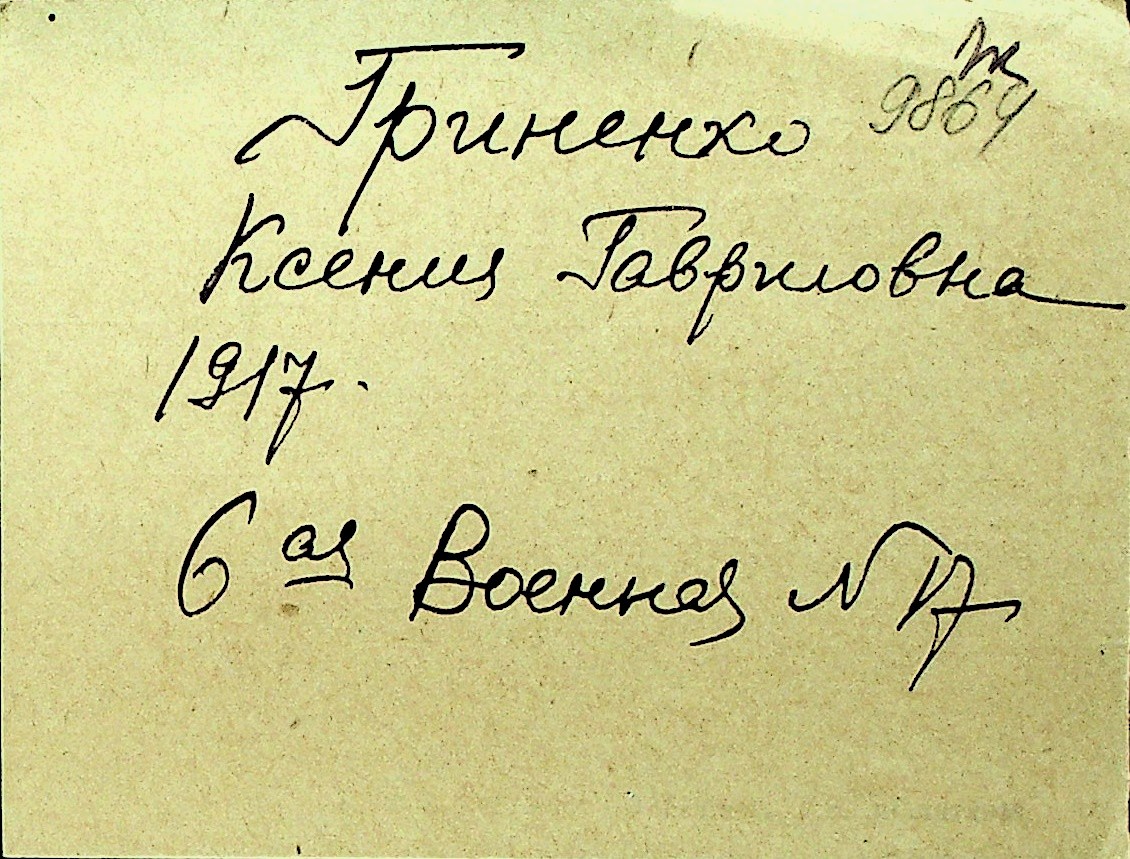 Гриненко 9864
Ксения Гавриловна
1917.
6 ая Военная N 17